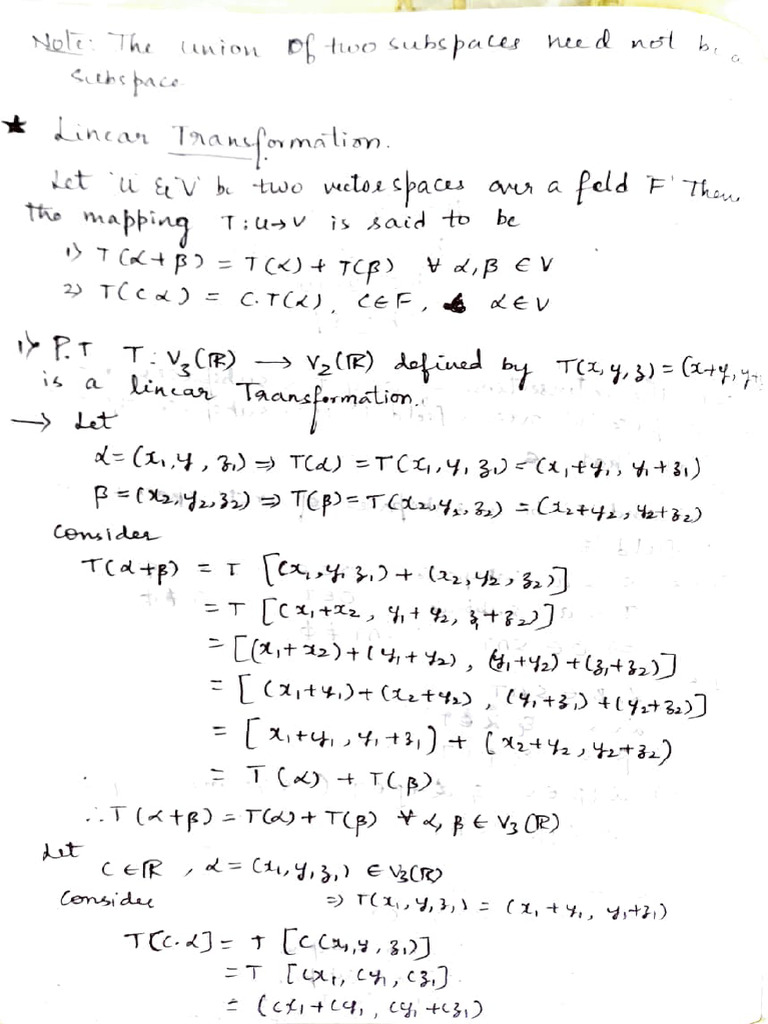 Note: The union of two subspaces need not be a
subspace
★ Linear Transformation.
Let 'U' & 'V' be two vector spaces over a feld 'F' Then
the mapping T:U→V is said to be
1) T(α+β) = T(α) + T(β) ∀ α,β ∈ V
2) T(cα) = C.T(α), C∈F, α∈V
1) P.T T: V₃(ℝ) → V₂(ℝ) defined by T(x,y,z) = (x+y, y+
is a linear Transformation.
→ Let
α=(x₁,y,z₁) ⇒ T(α) = T(x₁,y,z₁) = (x₁+y₁, y₁+z₁)
β=(x₂,y₂,z₂) ⇒ T(β) = T(x₂,y₂,z₂) = (x₂+y₂, y₂+z₂)
Consider
T(α+β) = T [(x₁,y₁ z₁) + (x₂,y₂,z₂)]
= T [(x₁+x₂, y₁+y₂, z₁+z₂)]
= [(x₁+x₂)+(y₁+y₂), (y₁+y₂)+(z₁+z₂)]
= [(x₁+y₁)+(x₂+y₂), (y₁+z₁)+(y₂+z₂)]
= [x₁+y₁, y₁+z₁) + (x₂+y₂, y₂+z₂)
= T(α) + T(β)
∴ T(α+β) = T(α) + T(β) ∀ α, β ∈ V₃(ℝ)
Let
C∈ℝ, α = (x₁,y,z₁) ∈ V₃(ℝ)
Consider ⇒ T(x₁,y,z₁) = (x₁+y₁, y₁+z₁)
T[C.α] = T [C(x₁,y,z₁)]
= T [cx₁, cy₁, cz₁]
= (cx₁+cy₁, cy₁+cz₁)